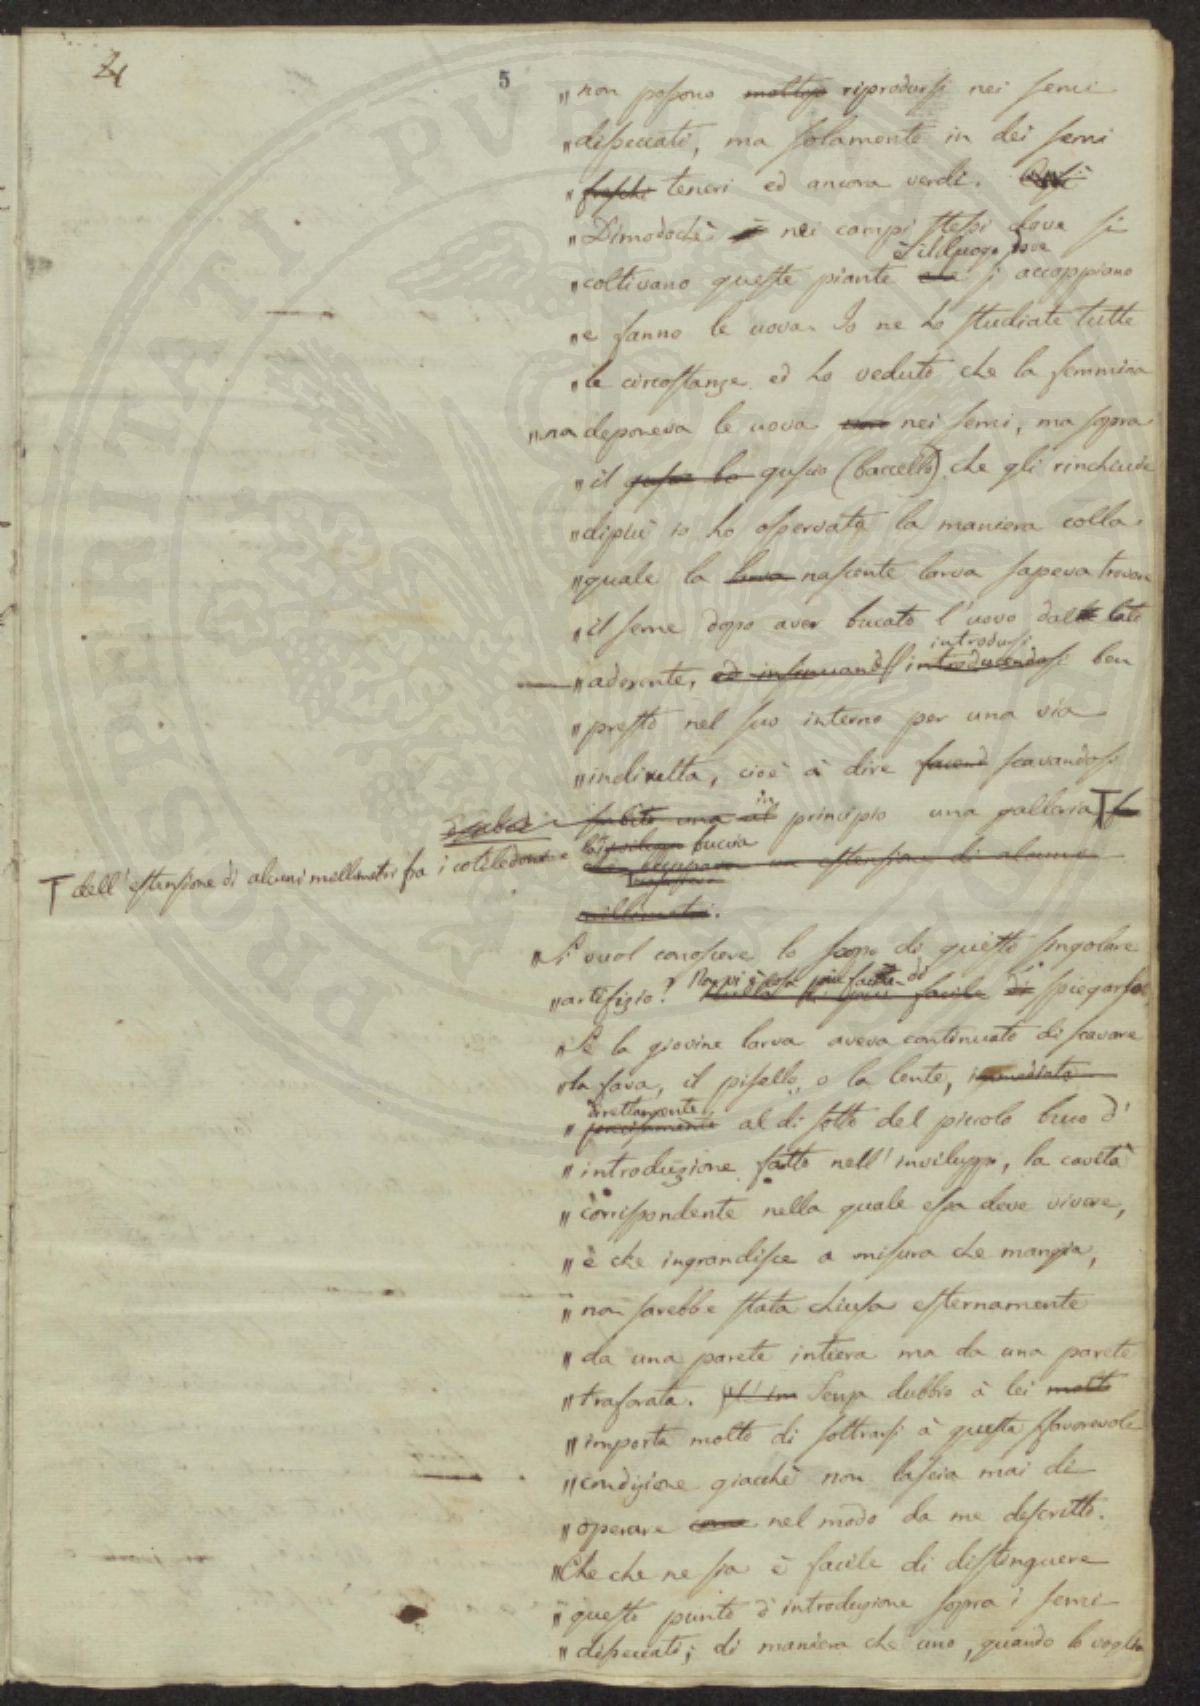 21
5
„ non possono moltip riprodursi nei semi
„ disseccati, ma solamente in dei semi
„ freschi teneri ed ancora verdi. Così
„ Dimodochè è nei campi stessi dove si
è il luogo dove
„ coltivano queste piante che si accoppiano
„ e fanno le uova. Io ne ho studiate tutte
„ le circostanze ed ho veduto che la femmina
„ na deponeva le uova non nei semi, ma sopra
„ il guscio lo guscio (baccello) che gli rinchiude
„ dipiù io ho osservata la maniera colla
„ quale la larva nascente larva sapeva trovare
„ il seme dopo aver bucato l'uovo dal lato
introdursi
„ aderente, ed insinuandosi introducendosi ben
„ presto nel suo interno per una via
„ indiretta, cioè à dire facend scavandosi
in
subito una al principio una gallaria T
buccia
T dell'estensione di alcuni millimetri fra i cotiledoni e
un estensione di alcuni
millimetri.
„ Si vuol conoscere lo scopo di questo singolare
Non vi è cosa più facile di
„ artifizio? facile di spiegarsi
„ Se la giovine larva aveva continuato di scavare
„ la fava, il pisello, o la lente, immediata
direttamente
„ precisamente al di sotto del piccolo buco d'
„ introduzione fatto nell'inviluppo, la cavità
„ corrispondente nella quale essa deve vivere,
„ è che ingrandisce a misura che mangia,
„ non sarebbe stata chiusa esternamente
„ da una parete intiera ma da una parete
„ traforata. Senza dubbio à lei molto
„ importa molto di soltrarsi à questa sfavorevole
„ condizione giacchè non lascia mai di
„ operare come nel modo da me descritto.
„ Che che ne sia è facile di distinguere
„ questo punto d'introduzione sopra i semi
„ disseccati; di maniera che uno, quando lo voglia